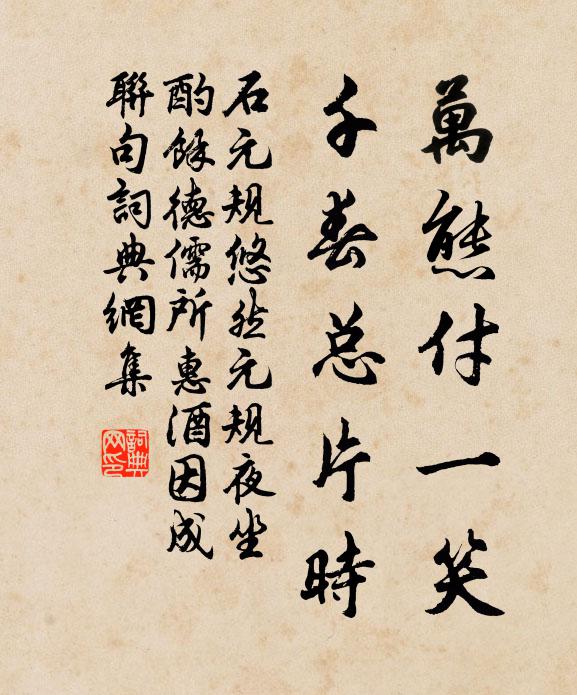 萬態付一笑
千春总片時
石元規悠然元規夜坐
酌餘德儒所惠酒因成
聯句詞典網集
詞典
网印